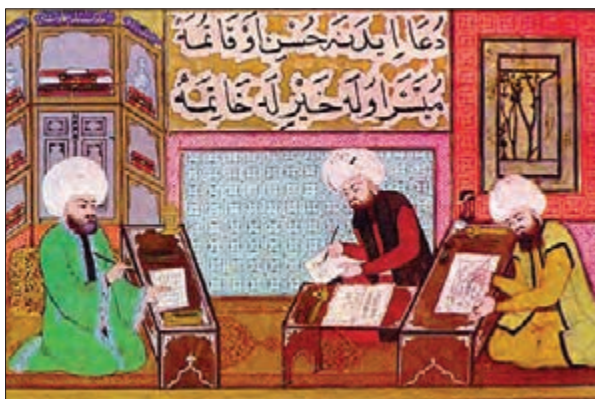 دُعَا اِيدَنه حُسْنِ اوقَاتمَه
مُيَسَّر اولَه خَيْرِلَه خَاتِمَه